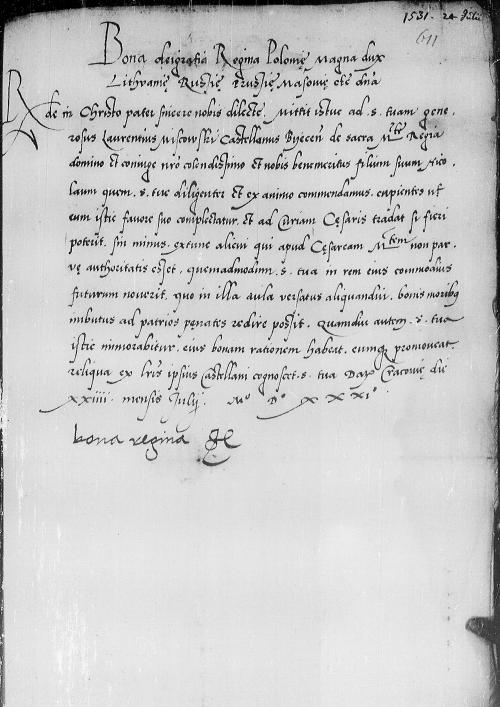 1531. 24 Julii
611
Bona dei gratia Regina Polonię Magna dux
Lithvanię Rußię Prußię Masovię etc dña
Rde in Christo pater sincere nobis dilecte. Mittit istuc ad .s. tuam gene-
rosus Laurentius Miscowski Castellanus Byecen̄ de sacra Mte Regia
domino et coniuge nro colendissimo et nobis benemeritus filium suum Nico-
laum quem .s. tuę diligenter et ex animo commendamus. cupientes ut
eum istic favore suo complectatur. et ad Curiam Cęsaris tradat si fieri
poterit. sin minus. extunc alicui qui apud Cęsaream Mtem non par-
vę authoritatis esset. quemadmodum .s. tua in rem eius commodius
futurum noverit. quo in illa aula versatus aliquandiu. bonis moribq
imbutus ad patrios penates redire possit. Quamdiu autem .s. tua
istic immorabitur. eius bonam rationem habeat. eumq promoveat.
reliqua ex lris ipsius Castellani cognoscet .s. tua Dat Cracovię die
xxiiii. mensis Julij. Mo Do xxxio.
bona regina